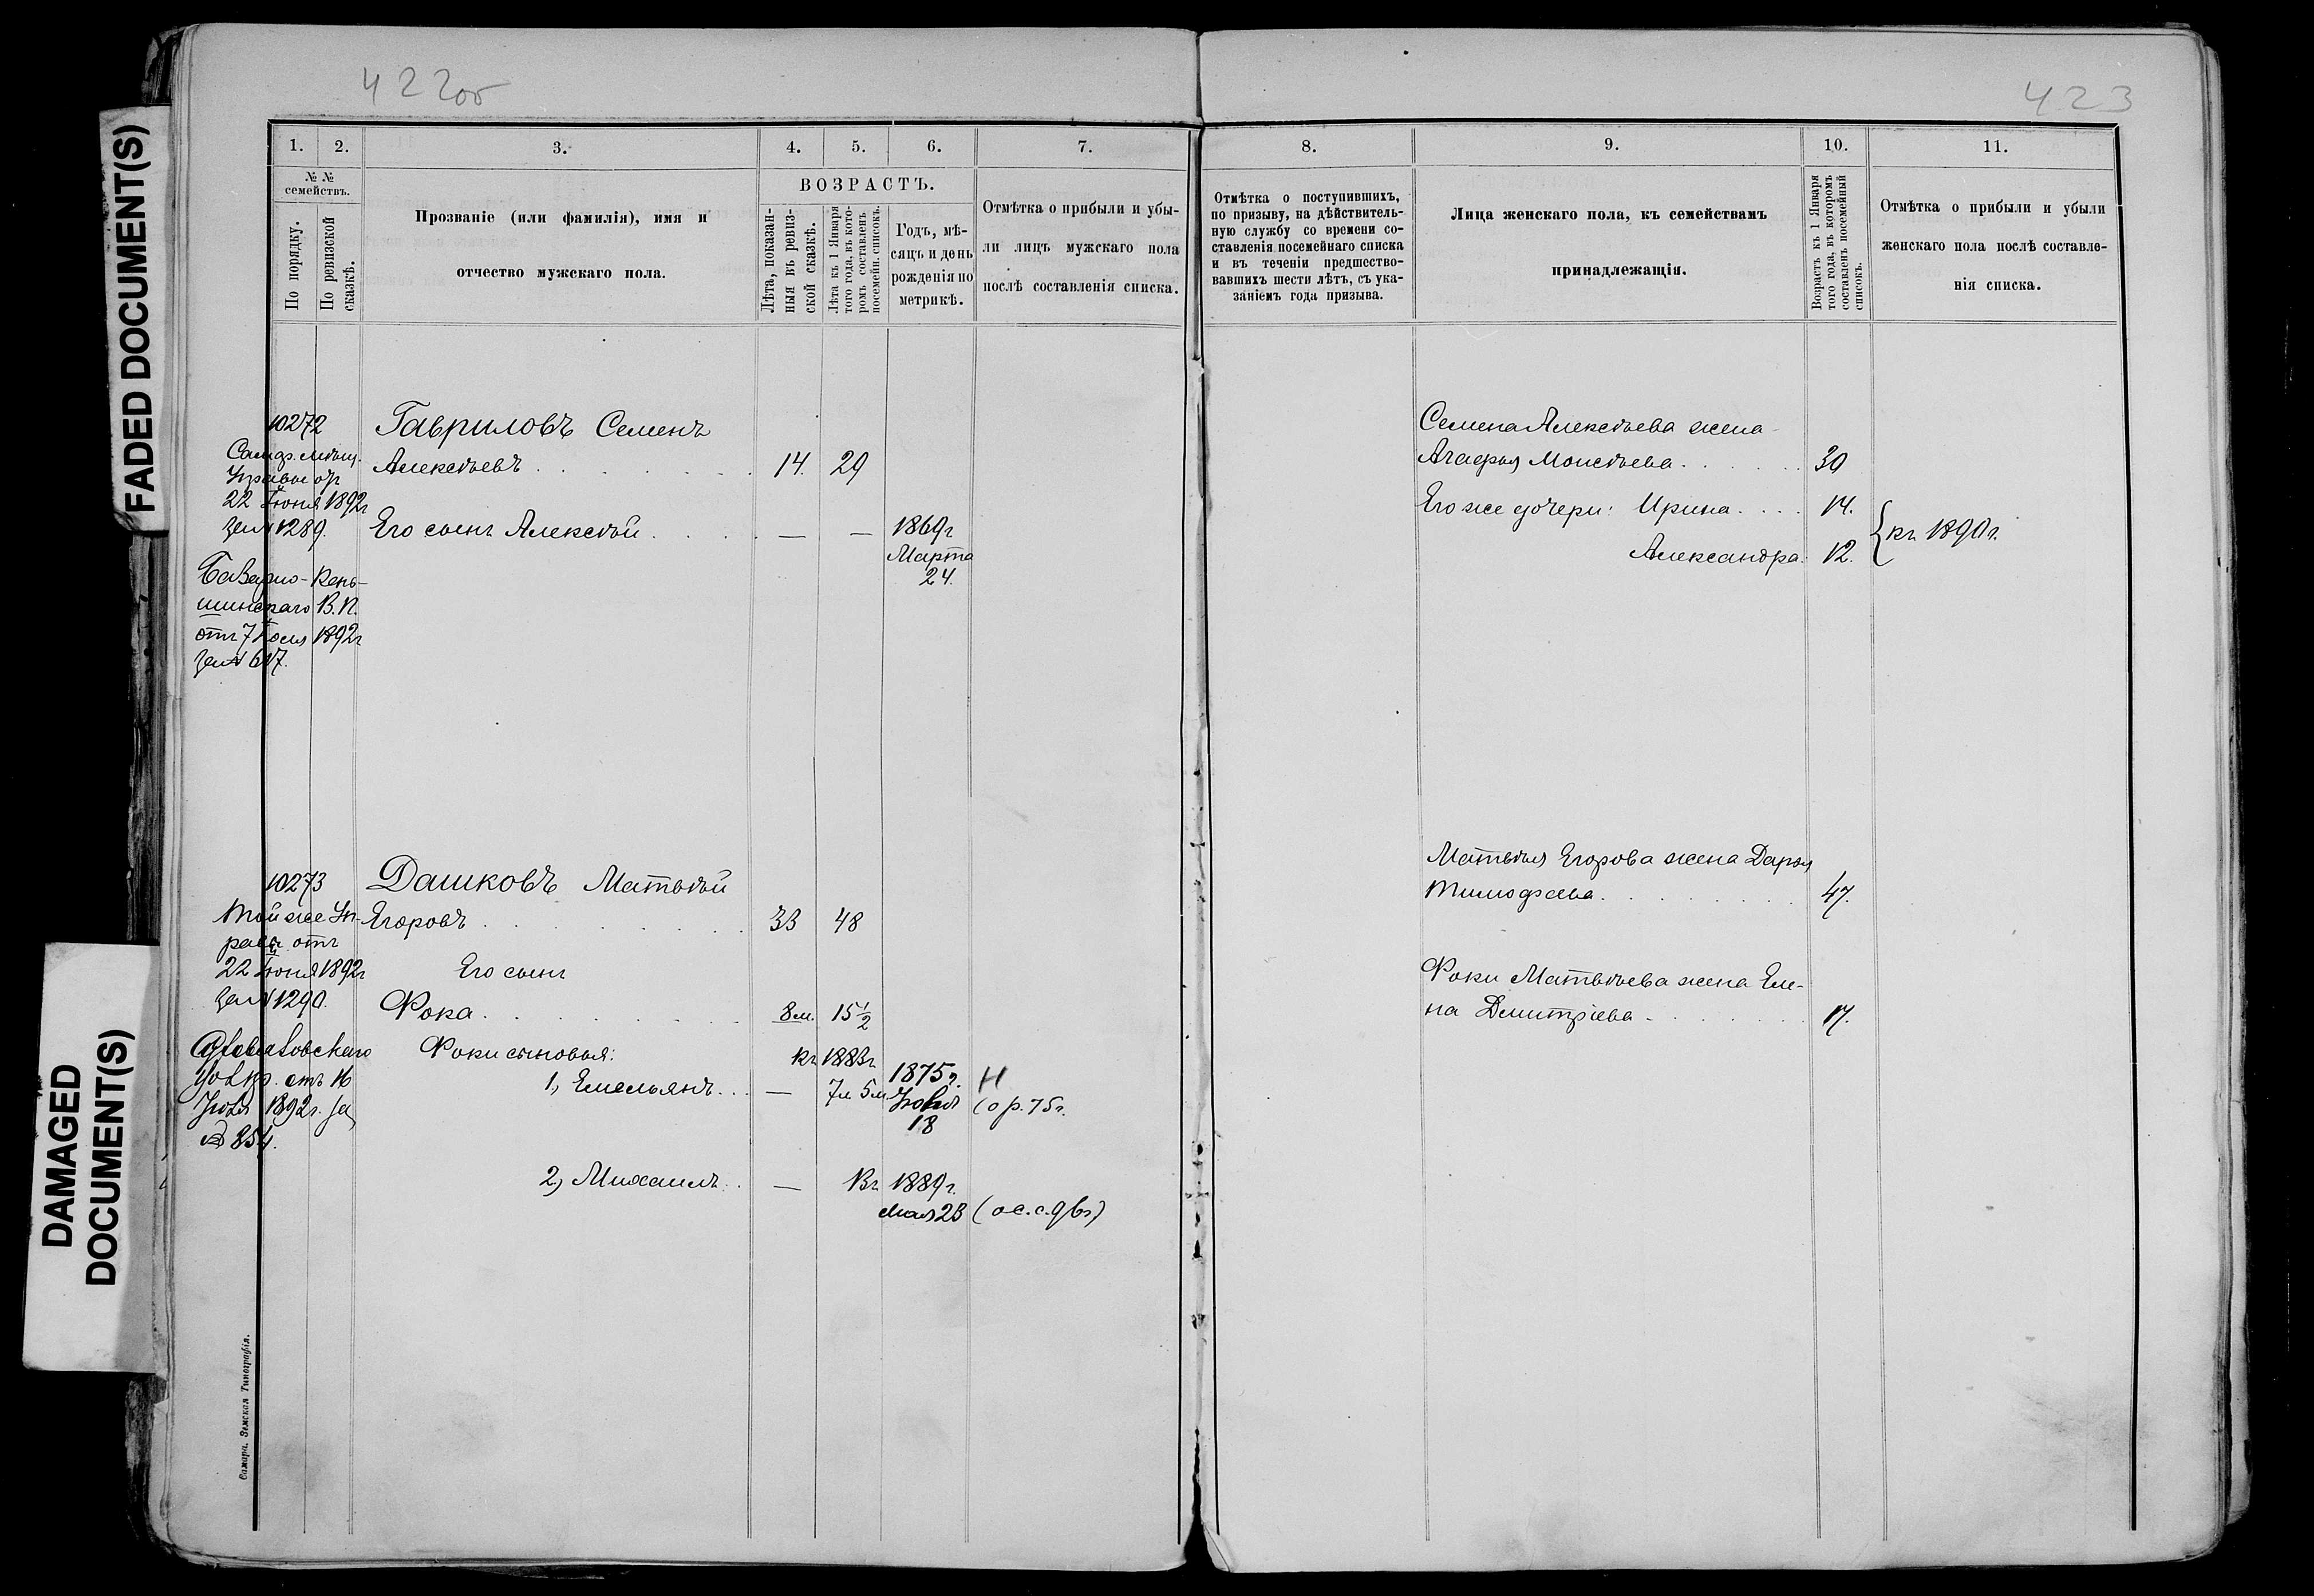 FADED DOCUMENT(S)
DAMAGED
DOCUMENT(S)
422об
1.
2.
3.
4.
5.
6.
7.
№ №
семействъ.
По порядку.
По ревизской
сказкѣ.
Прозваніе (или фамилія), имя и
отчество мужскаго пола.
ВОЗРАСТЪ.
Лѣта, показан-
ныя въ ревиз-
ской сказкѣ.
Лѣта къ 1 Января
того года, въ кото-
ромъ составленъ
посемейн. списокъ.
Годъ, мѣ-
сяцъ и день
рожденія по
метрикѣ.
Отмѣтка о прибыли и убы-
ли лицъ мужскаго пола
послѣ составленія списка.
10272
Гавриловъ Семенъ
Алексѣевъ
14.
29
22 Іюня 1892г
1289.
Его сынъ Алексѣй
—
—
1869г
Марта
24.
В. П.
отъ 7 Іюля 1892г
617.
10273
Дашковъ Матвѣй
Той же Уп-
равы отъ
22 Іюня 1892г
1290.
Егоровъ
33
48
Его сынъ
Фока
8 м.
15 1/2
отъ 16
1892г. за
№ 854.
Фоки сыновья:
къ 1883г
1, Емельянъ
—
7л 5м
1875г.
Іюля
18
2, Михаилъ
—
Въ 1889г.
Мая 23
Самара. Земская Типографія.
423
8.
9.
10.
11.
Отмѣтка о поступившихъ,
по призыву, на дѣйствитель-
ную службу со времени со-
ставленія посемейнаго списка
и въ теченіи предшество-
вавшихъ шести лѣтъ, съ ука-
заніемъ года призыва.
Лица женскаго пола, къ семействамъ
принадлежащія.
Возрастъ къ 1 Января
того года, въ которомъ
составленъ посемейный
списокъ.
Отмѣтка о прибыли и убыли
женскаго пола послѣ составле-
нія списка.
Семена Алексѣева жена
Агафья Моисѣева
30
Его же дочери: Ирина
14.
Александра
12.
къ 1890г.
Матвѣя Егорова жена Дарья
Тимофеева
47.
Фоки Матвѣева жена Еле-
на Дмитріева
17.